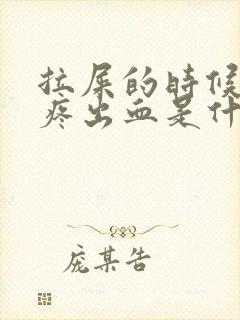 拉屎的时候
疼出血是什
庞某告